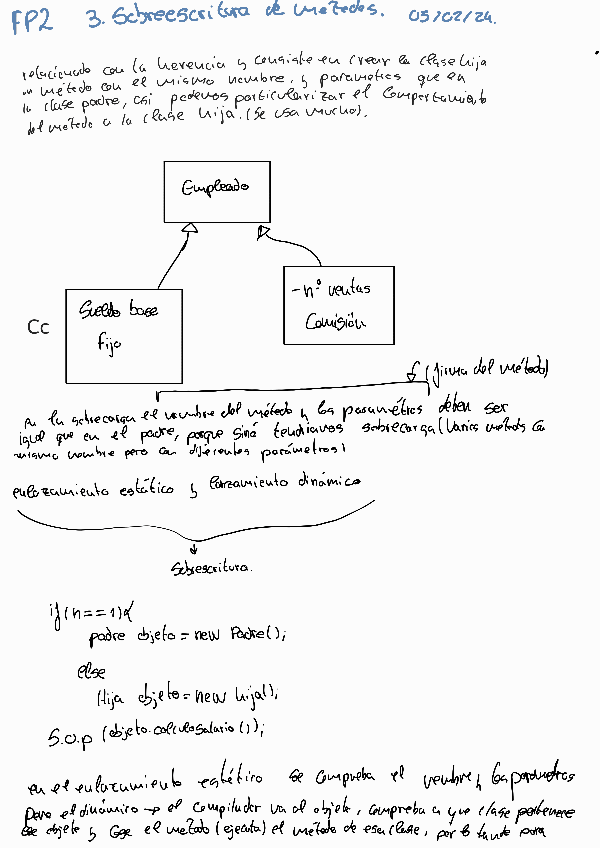 FP2 3. Sobreescritura de métodos. 05/02/24.
relacionado con la herencia y consiste en crear la clase hija
un método con el mismo nombre, y parametros que en
la clase padre, asi podemos particularizar el comportamiento
del método a la clase hija. (Se usa mucho).
Empleado
Sueldo base
fijo
- nº ventas
Comisión
Cc
(firma del método)
en la sobrecarga el nombre del método y los parámetros deben ser
igual que en el padre, porque sinó tendriamos sobrecarga (varios métodos con
mismo nombre pero con diferentes parámetros)
enlazamiento estático y lanzamiento dinámico
Sobrescritura.
if (n==1){
padre objeto = new Padre();
else
Hija objeto = new hija();
S.o.p (objeto.calculoSalario());
en el enlazamiento estático se comprueba el nombre y los parámetros
Pero el dinámico → el compilador va al objeto, comprueba a que clase pertenece
ese objeto y coge el metodo (ejecuta) el método de esa clase, por lo tanto para